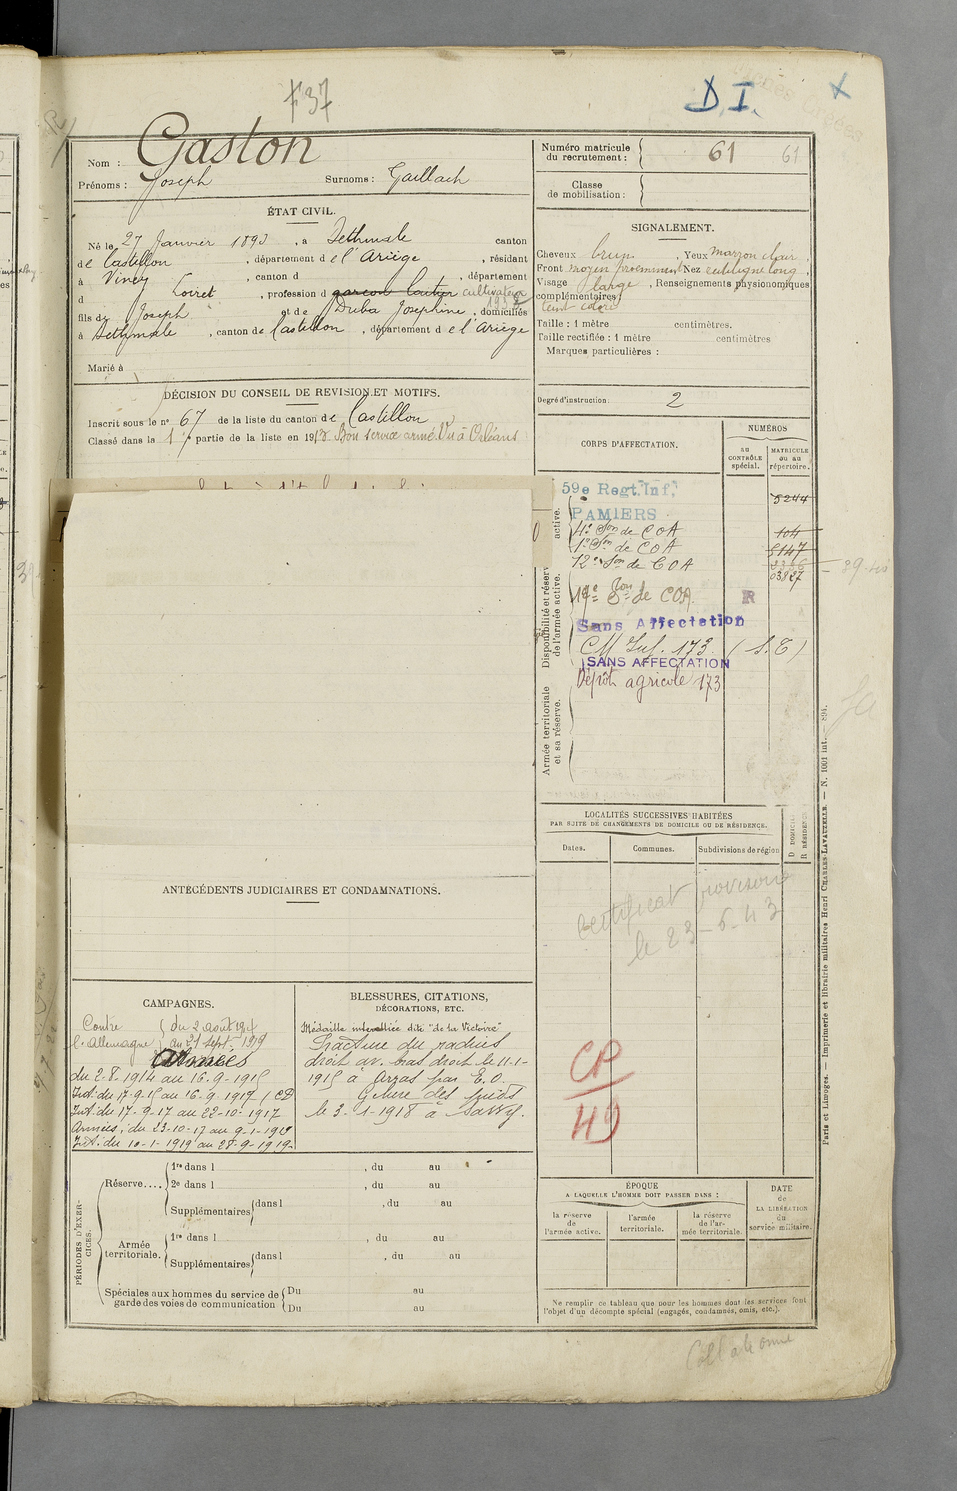 F 37
D.I.
Nom : Gaston
Prénoms : Joseph Surnoms : Gaillach
Numéro matricule du recrutement : 61 61
Classe de mobilisation :
ÉTAT CIVIL.
Né le 27 Janvier 1893, à Sethmale canton
de Castillon, département de l'Ariège, résidant
à Viney, canton d , département
d Loiret, profession d garcon laitier cultivateur
1932
fils de Joseph et de Duba Josephine, domiciliés
à Sethmale, canton de Castillon, département de l'Ariège
Marié à
SIGNALEMENT.
Cheveux brun, Yeux marron clair,
Front moyen proeminent Nez rectiligne long,
Visage large, Renseignements physionomiques
complémentaires :
teint coloré
Taille : 1 mètre centimètres.
Taille rectifiée : 1 mètre centimètres
Marques particulières :
Degré d'instruction : 2
DÉCISION DU CONSEIL DE REVISION ET MOTIFS.
Inscrit sous le n° 67 de la liste du canton de Castillon
Classé dans la 1e partie de la liste en 1913 Bon service armé. Vu à Orléans
CORPS D'AFFECTATION.
NUMÉROS
au CONTRÔLE spécial.
MATRICULE ou au répertoire.
Disponibilité et réserve de l'armée active.
Armée territoriale et sa réserve.
active.
59e Regt. Inf. 5244
PAMIERS
4e Son de COA 104
1e Son de COA 5147
12e Son de COA 2356
03827
17e Son de COA R
Sans Affectation
CM Inf. 173. (S.E)
SANS AFFECTATION
Dépôt agricole 173
LOCALITÉS SUCCESSIVES HABITÉES
PAR SUITE DE CHANGEMENTS DE DOMICILE OU DE RÉSIDENCE.
Dates. Communes. Subdivisions de région
D DOMICILE
R RÉSIDENCE
certificat provisoire
le 23-6-43
CP
49
ANTÉCÉDENTS JUDICIAIRES ET CONDAMNATIONS.
CAMPAGNES.
Contre l'Allemagne { du 2 août 1914
au 27 sept. 1919
Armées
du 2-8-1914 au 16-9-1915
Int. du 17-9-15 au 16-9-1917 / CD
Int. du 17-9-17 au 22-10-1917
Armées ; du 23-10-17 au 9-1-1919
Int. du 10-1-1919 au 28-9-1919
BLESSURES, CITATIONS,
DÉCORATIONS, ETC.
Médaille interalliée dite "de la Victoire"
Fracture du radius
droit av. bas droit le 11-1-
1915 à Arzas par E.O.
Gelure des pieds
le 3-1-1918 à Savy.
PÉRIODES D'EXERCICES.
Réserve....
1re dans l , du au
2e dans l , du au
Supplémentaires dans l , du au
Armée territoriale.
1re dans l , du au
Supplémentaires dans l , du au
Spéciales aux hommes du service de garde des voies de communication
Du au
Du au
ÉPOQUE
A LAQUELLE L'HOMME DOIT PASSER DANS :
la réserve de l'armée active.
l'armée territoriale.
la réserve de l'armée territoriale.
DATE de LA LIBÉRATION du service militaire.
Ne remplir ce tableau que pour les hommes dont les services font
l'objet d'un décompte spécial (engagés, condamnés, omis, etc.).
Collationné
Paris et Limoges. — Imprimerie et librairie militaires Henri CHARLES-LAVAUZELLE. — N. 1001 int. — 894.